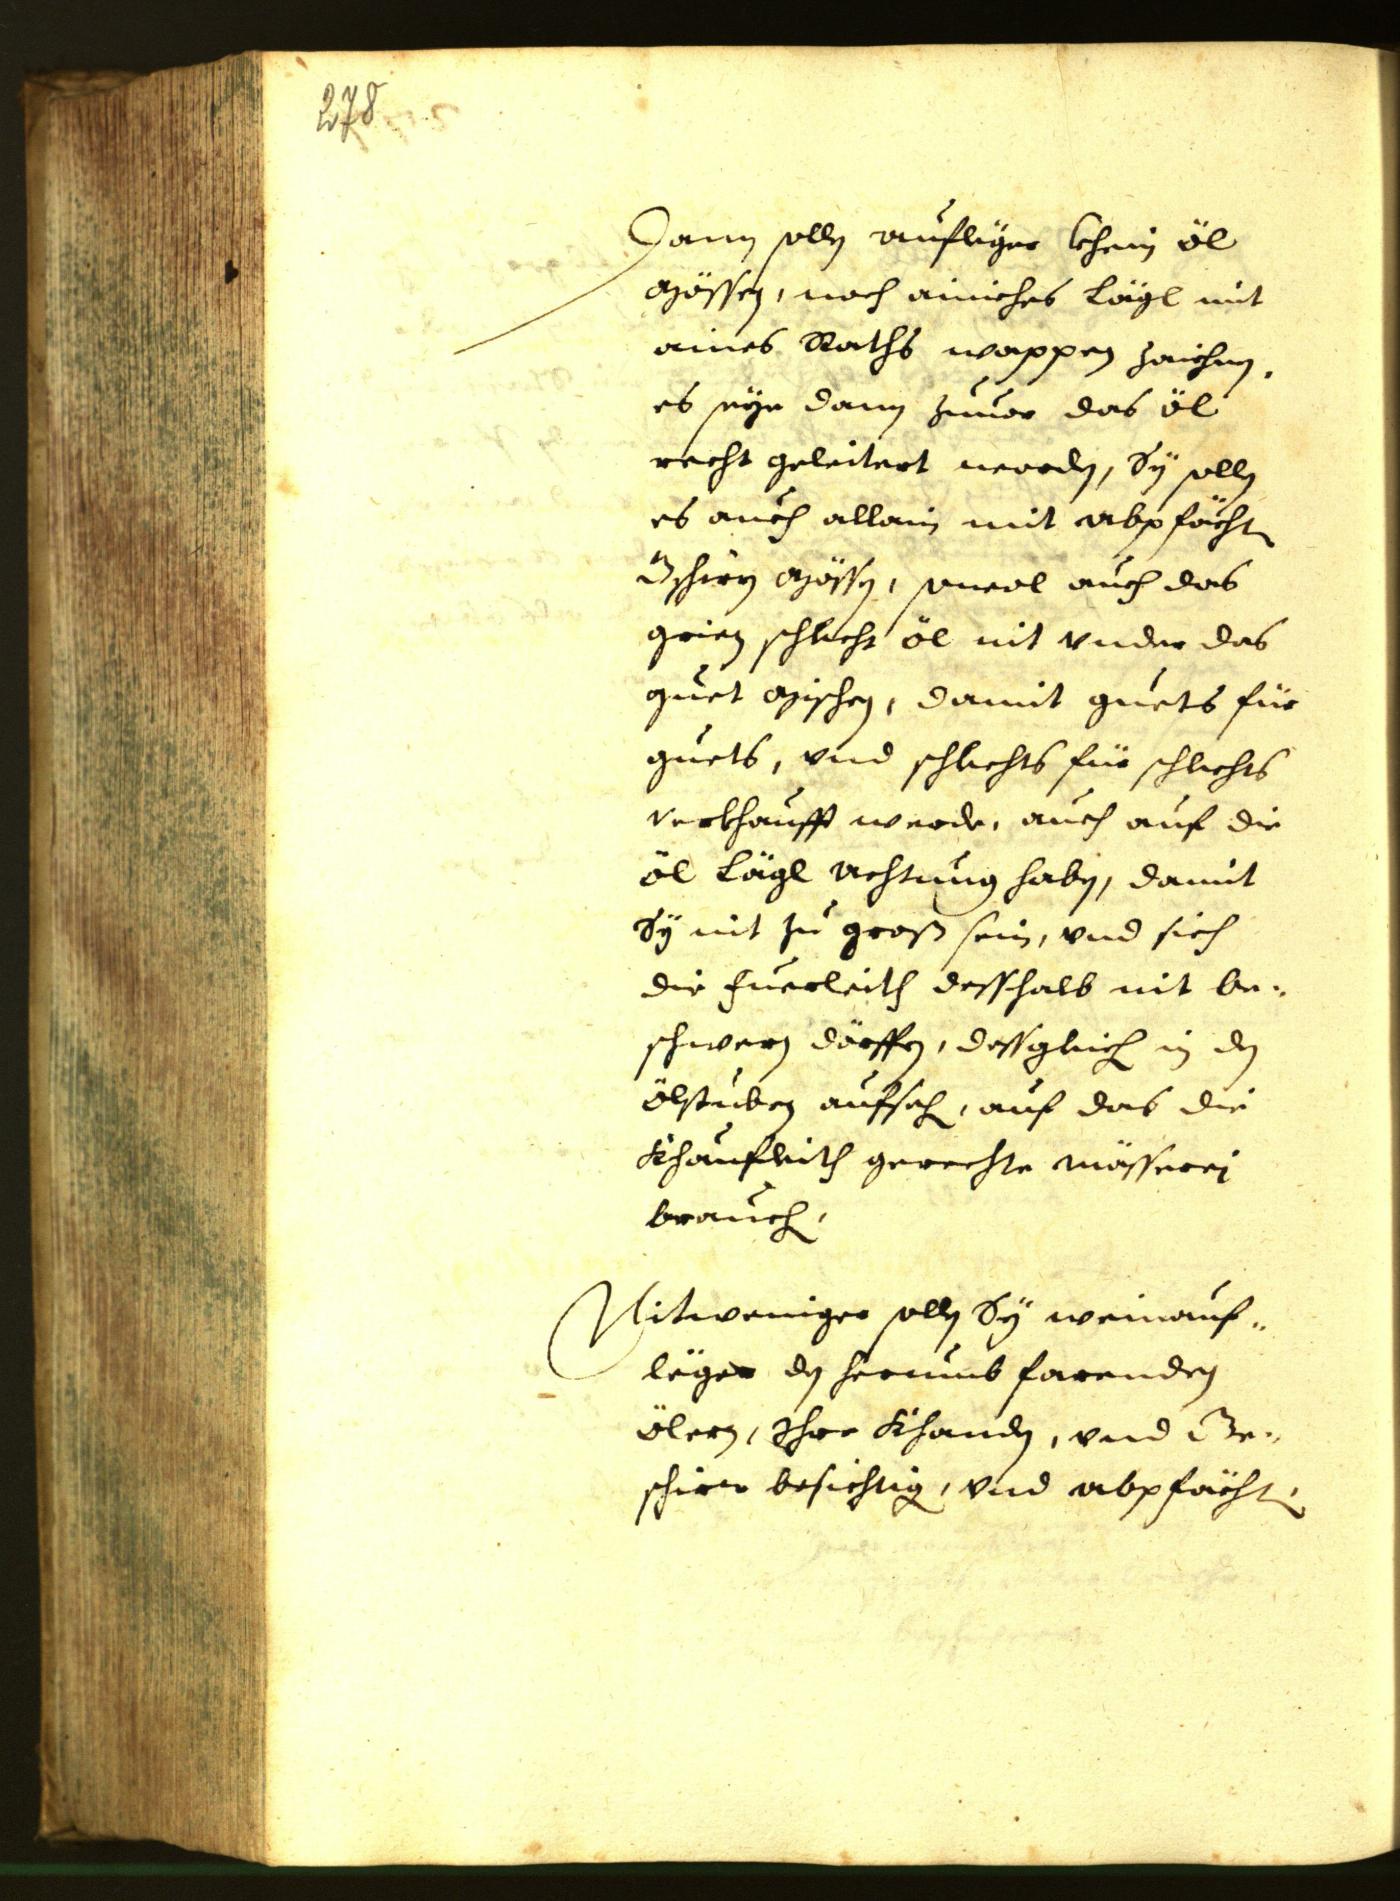 278
Dann solln aufleger khein öl
mössen, noch ainiches Lägl mit
aines Raths wappen zaichnen,
es seye dann zuuor das öl
recht geleitert worden, Sÿ solln
es auch allain mit abpfächt
Gschirn mössen, souol auch das
grien schlecht öl nit vnder das
guet mischen, damit guets für
guets, vnd schlechts für schlechts
verkhaufft werde, auch auf die
öl Lägl achtung haben, damit
Sÿ nit zu groß sein, vnd sich
die Fuerleith desshalb nit be„
schwern dörffen, dessgleich in den
ölstuben aufsech, auf das die
Khaufleith gerechte mässerej
brauch,
Nitweniger solln Sÿ weinauf„
leger den herumb farenden
ölern, Ihre Khanden, vnd Ge„
schirr besichtig, vnd abpfächt,